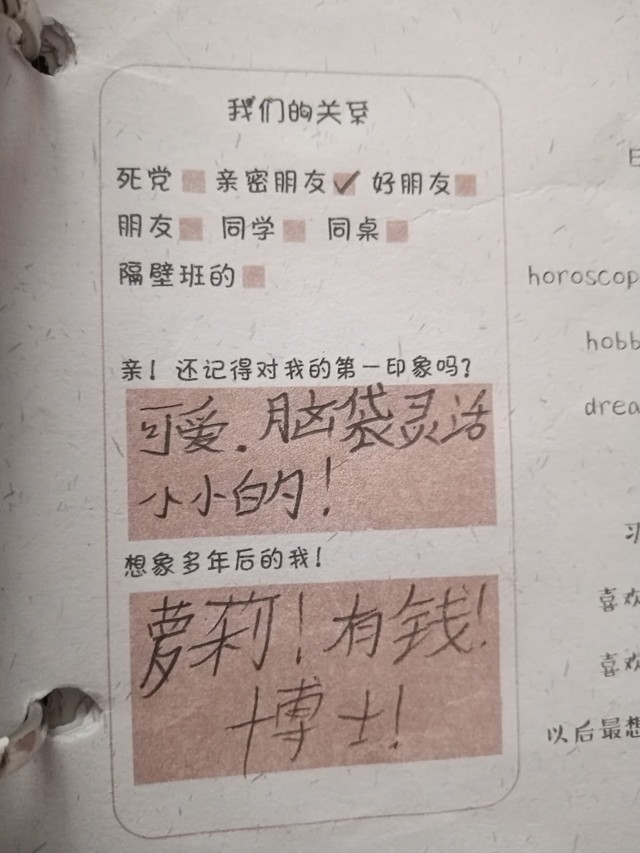 我们的关系
死党 亲密朋友✓ 好朋友
朋友 同学 同桌
隔壁班的
亲! 还记得对我的第一印象吗?
可爱.脑袋灵活
小小的!
想象多年后的我!
萝莉!有钱!
博士!
horoscop
hobb
drea
喜欢
喜欢
以后最想